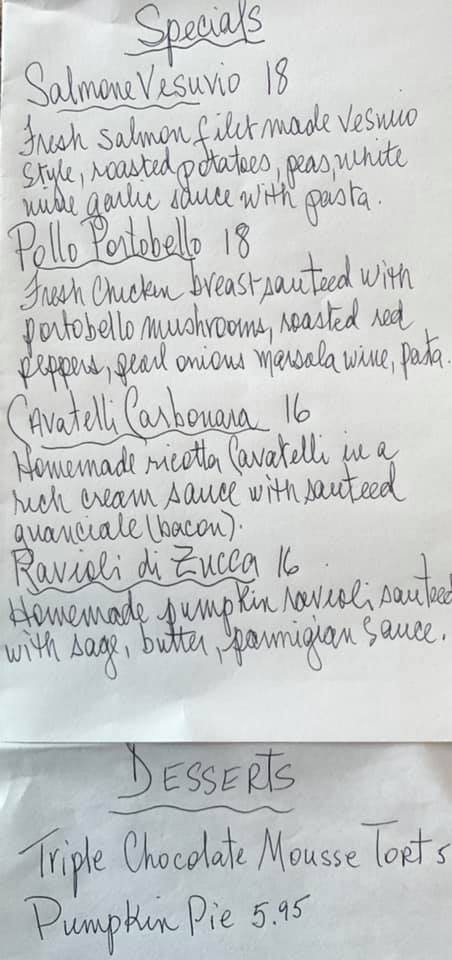 Specials
Salmone Vesuvio 18
Fresh salmon filet made Vesuvio
style, roasted potatoes, peas, white
wine garlic sauce with pasta.
Pollo Portobello 18
Fresh Chicken breast sauteed with
portobello mushrooms, roasted red
peppers, pearl onions marsala wine, pasta.
Cavatelli Carbonara 16
Homemade ricotta Cavatelli in a
rich cream sauce with sauteed
guanciale (bacon).
Ravioli di Zucca 16
Homemade pumpkin ravioli sauteed
with sage, butter, parmigian sauce.
DESSERTS
Triple Chocolate Mousse Tort 5
Pumpkin Pie 5.95